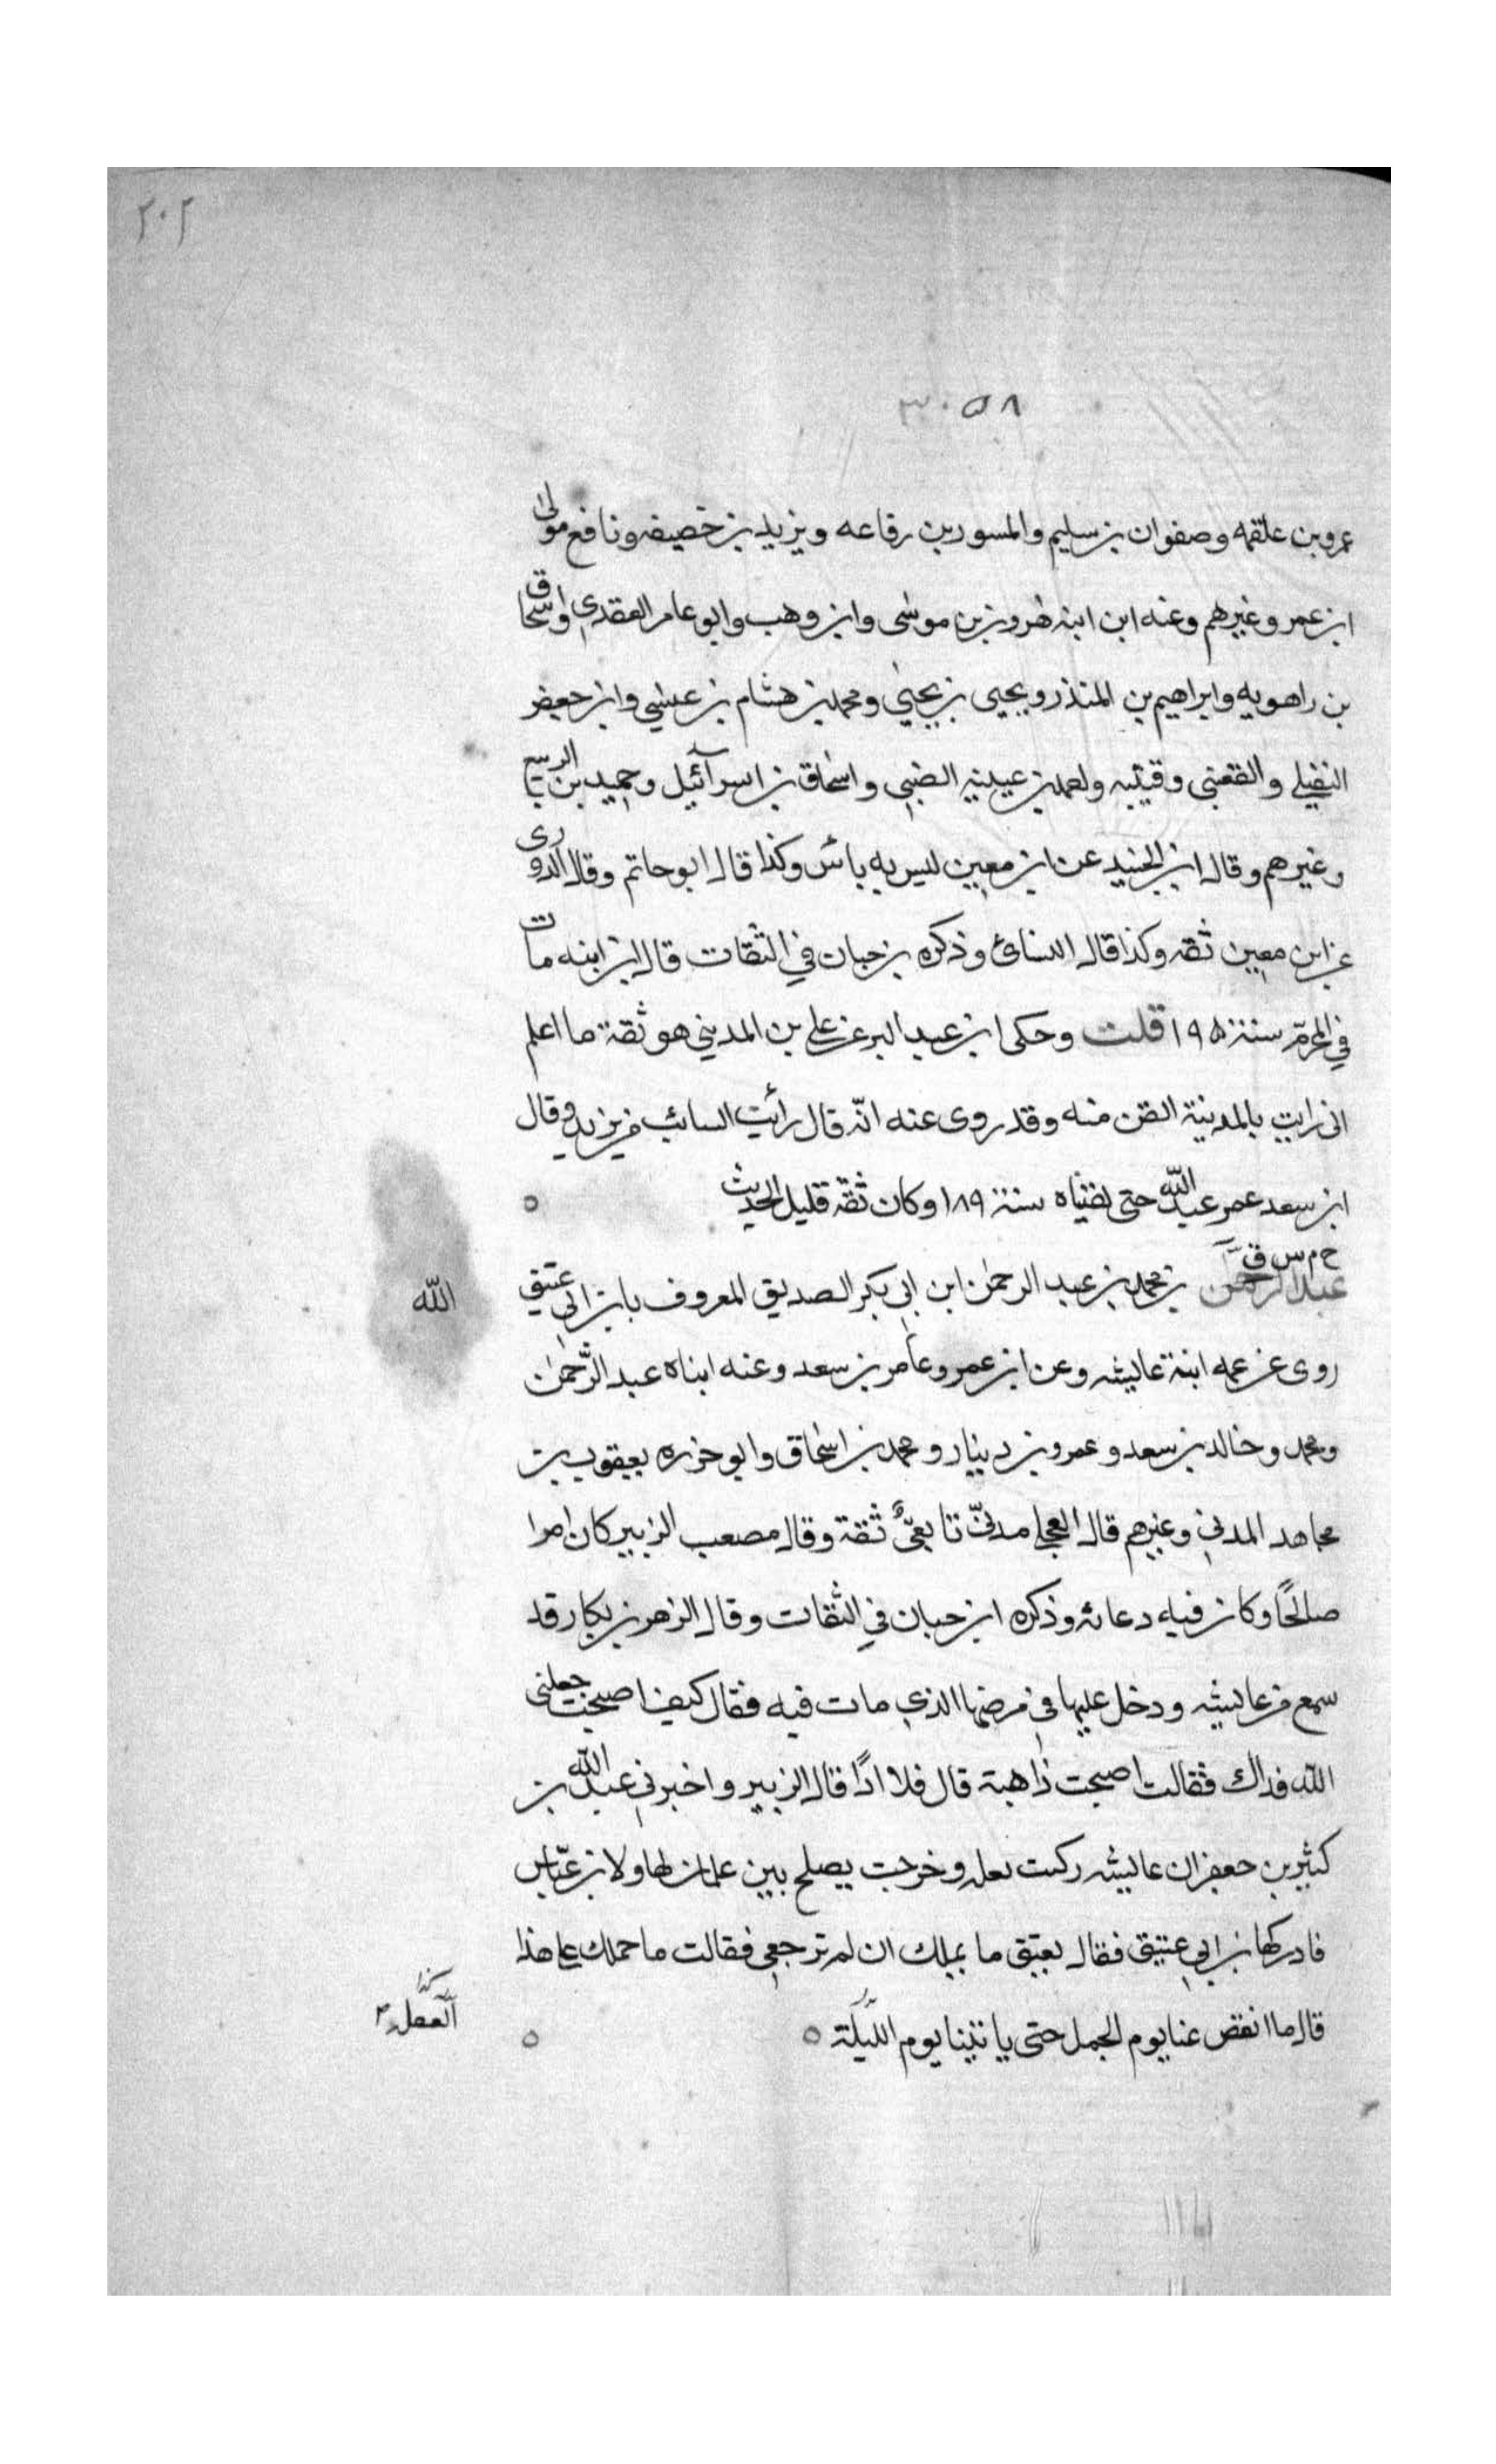 ٢٠٢
٣٠٥٨
عمرو بن علقمه وصفوان بن سليم والمسور بن رفاعه ويزيد بن خصيفه ونافع مولى
ابن عمر وغيرهم وعنه ابن ابنه هرون بن موسى وابن وهب وابو عامر العقدي واسحاق
بن راهويه وابراهيم بن المنذر ويحيى بن يحيى ومحمد بن هشام بن عيسى وابن جعفر
النفيلي والقعنبي وقتيبه بن عيينه الضبي واسحاق بن اسرآئيل وحميد بن الربيع
وغيرهم وقال ابن الجنيد عن ابن معين ليس به باس وكذا قال ابو حاتم وقال الدورى
عن ابن معين ثقه وكذا قال النسائ وذكره بن حبان في الثقات قال ابن ابنه مات
في المحرّم سنة ١٩٥ قلت وحكى ابن عبد البر عن علي بن المديني هو ثقة ما اعلم
انى رايت بالمدينة اتقن منه وقد روى عنه انّه قال رأيت السائب بن يزيد وقال
ابن سعد عمر عبد الله حتى لقيناه سنة ١٨٩ وكان ثقة قليل الحديث ٥
خ م س ق
عبد الرحمن بن محمد بن عبد الرحمٰن ابن ابي بكر الصديق المعروف بابن ابي عتيق
الله
روى عن عمه ابنة عايشه وعن ابن عمر وعامر بن سعد وعنه ابناه عبد الرّحمٰن
ومحمد وخالد بن سعد وعمرو بن دينار ومحمد بن اسحاق وابو حزره يعقوب بن
مجاهد المدني وغيرهم قال العجلى مدنىّ تابعىٌّ ثقة وقال مصعب الزبير كان امرا
صالحًا وكان فيه دعابه وذكره ابن حبان في الثقات وقال الزهر بن بكار قد
سمع من عايشه ودخل عليها في مرضها الذي مات فيه فقال كيف اصبحت جعلنى
الله فداك فقالت اصبحت ذاهبة قال فلا اذًا قال الزبير واخبرنى عبد الله بن
كثير بن جعفر ان عايشه ركبت بغله وخرجت يصلح بين غلمان لها ولابن عبّاس
فادركها بن ابي عتيق فقال يعتق ما يملك ان لم ترجعي فقالت ما حملك على هذا
قال ما انقض عنا يوم الجمل حتى ياتينا يوم ٥ ٥